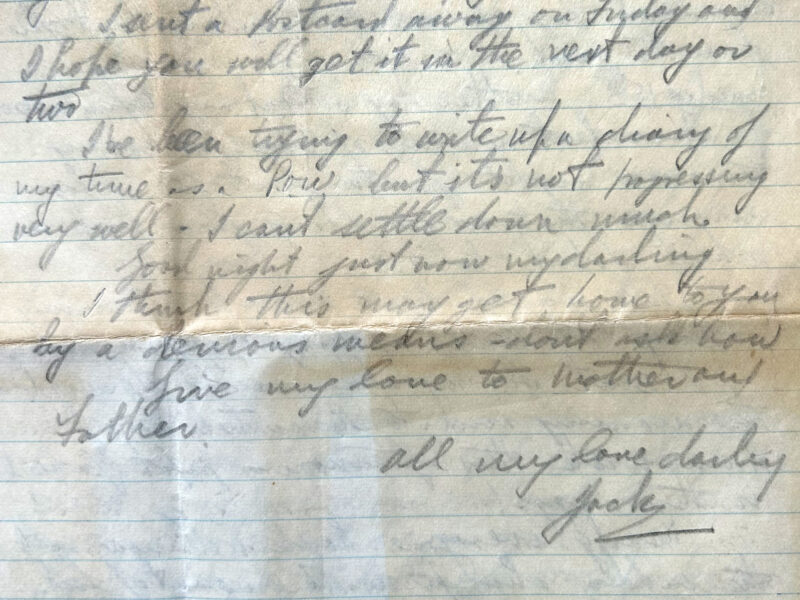 I sent a Postcard away on Friday and
I hope you will get it in the next day or
two
I've been trying to write up a diary of
my time as a Pow, but it's not progressing
very well - I cant settle down much.
Good night just now my darling.
I think this may get home to you
by a devious means - dont ask how
Give my love to Mother and
Father.
all my love darling
Jack